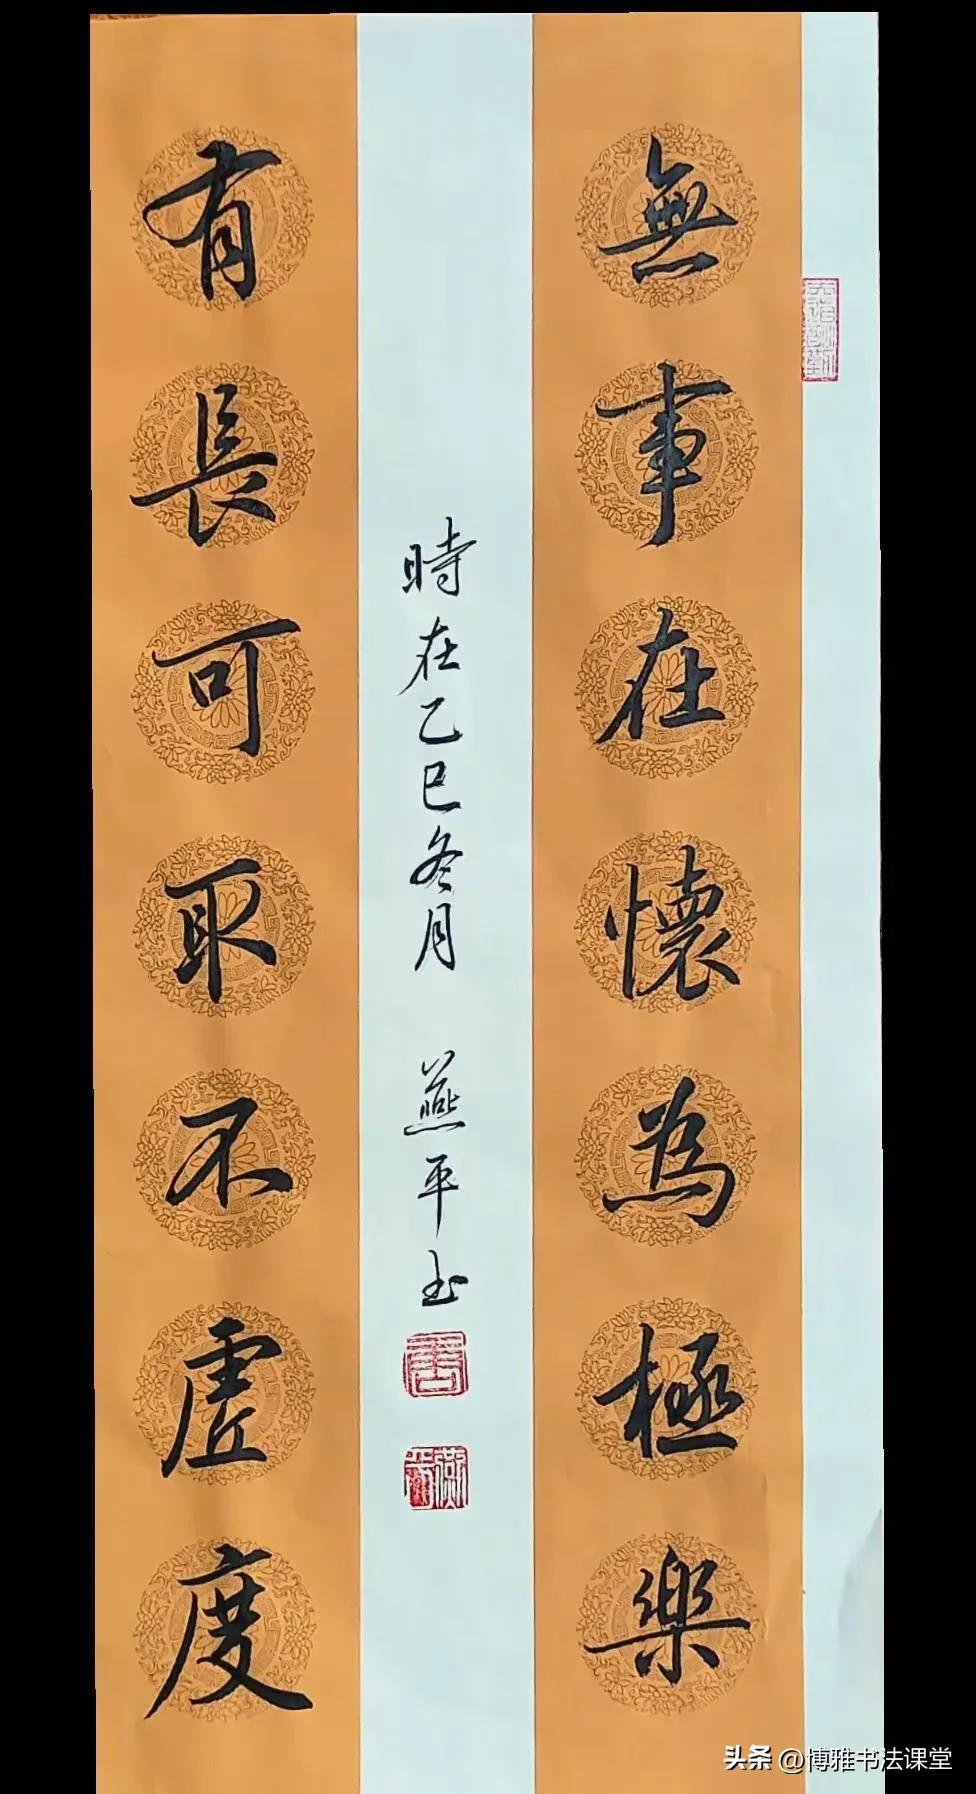 無事在懷為極樂
有長可取不虛度
時在乙巳冬月 燕平书
头条 @博雅书法课堂